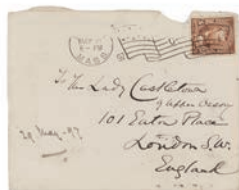 MASS.
To The Lady Castletown
of Upper Ossory
101 Eaton Place
London S.W.
England
29 May - 97